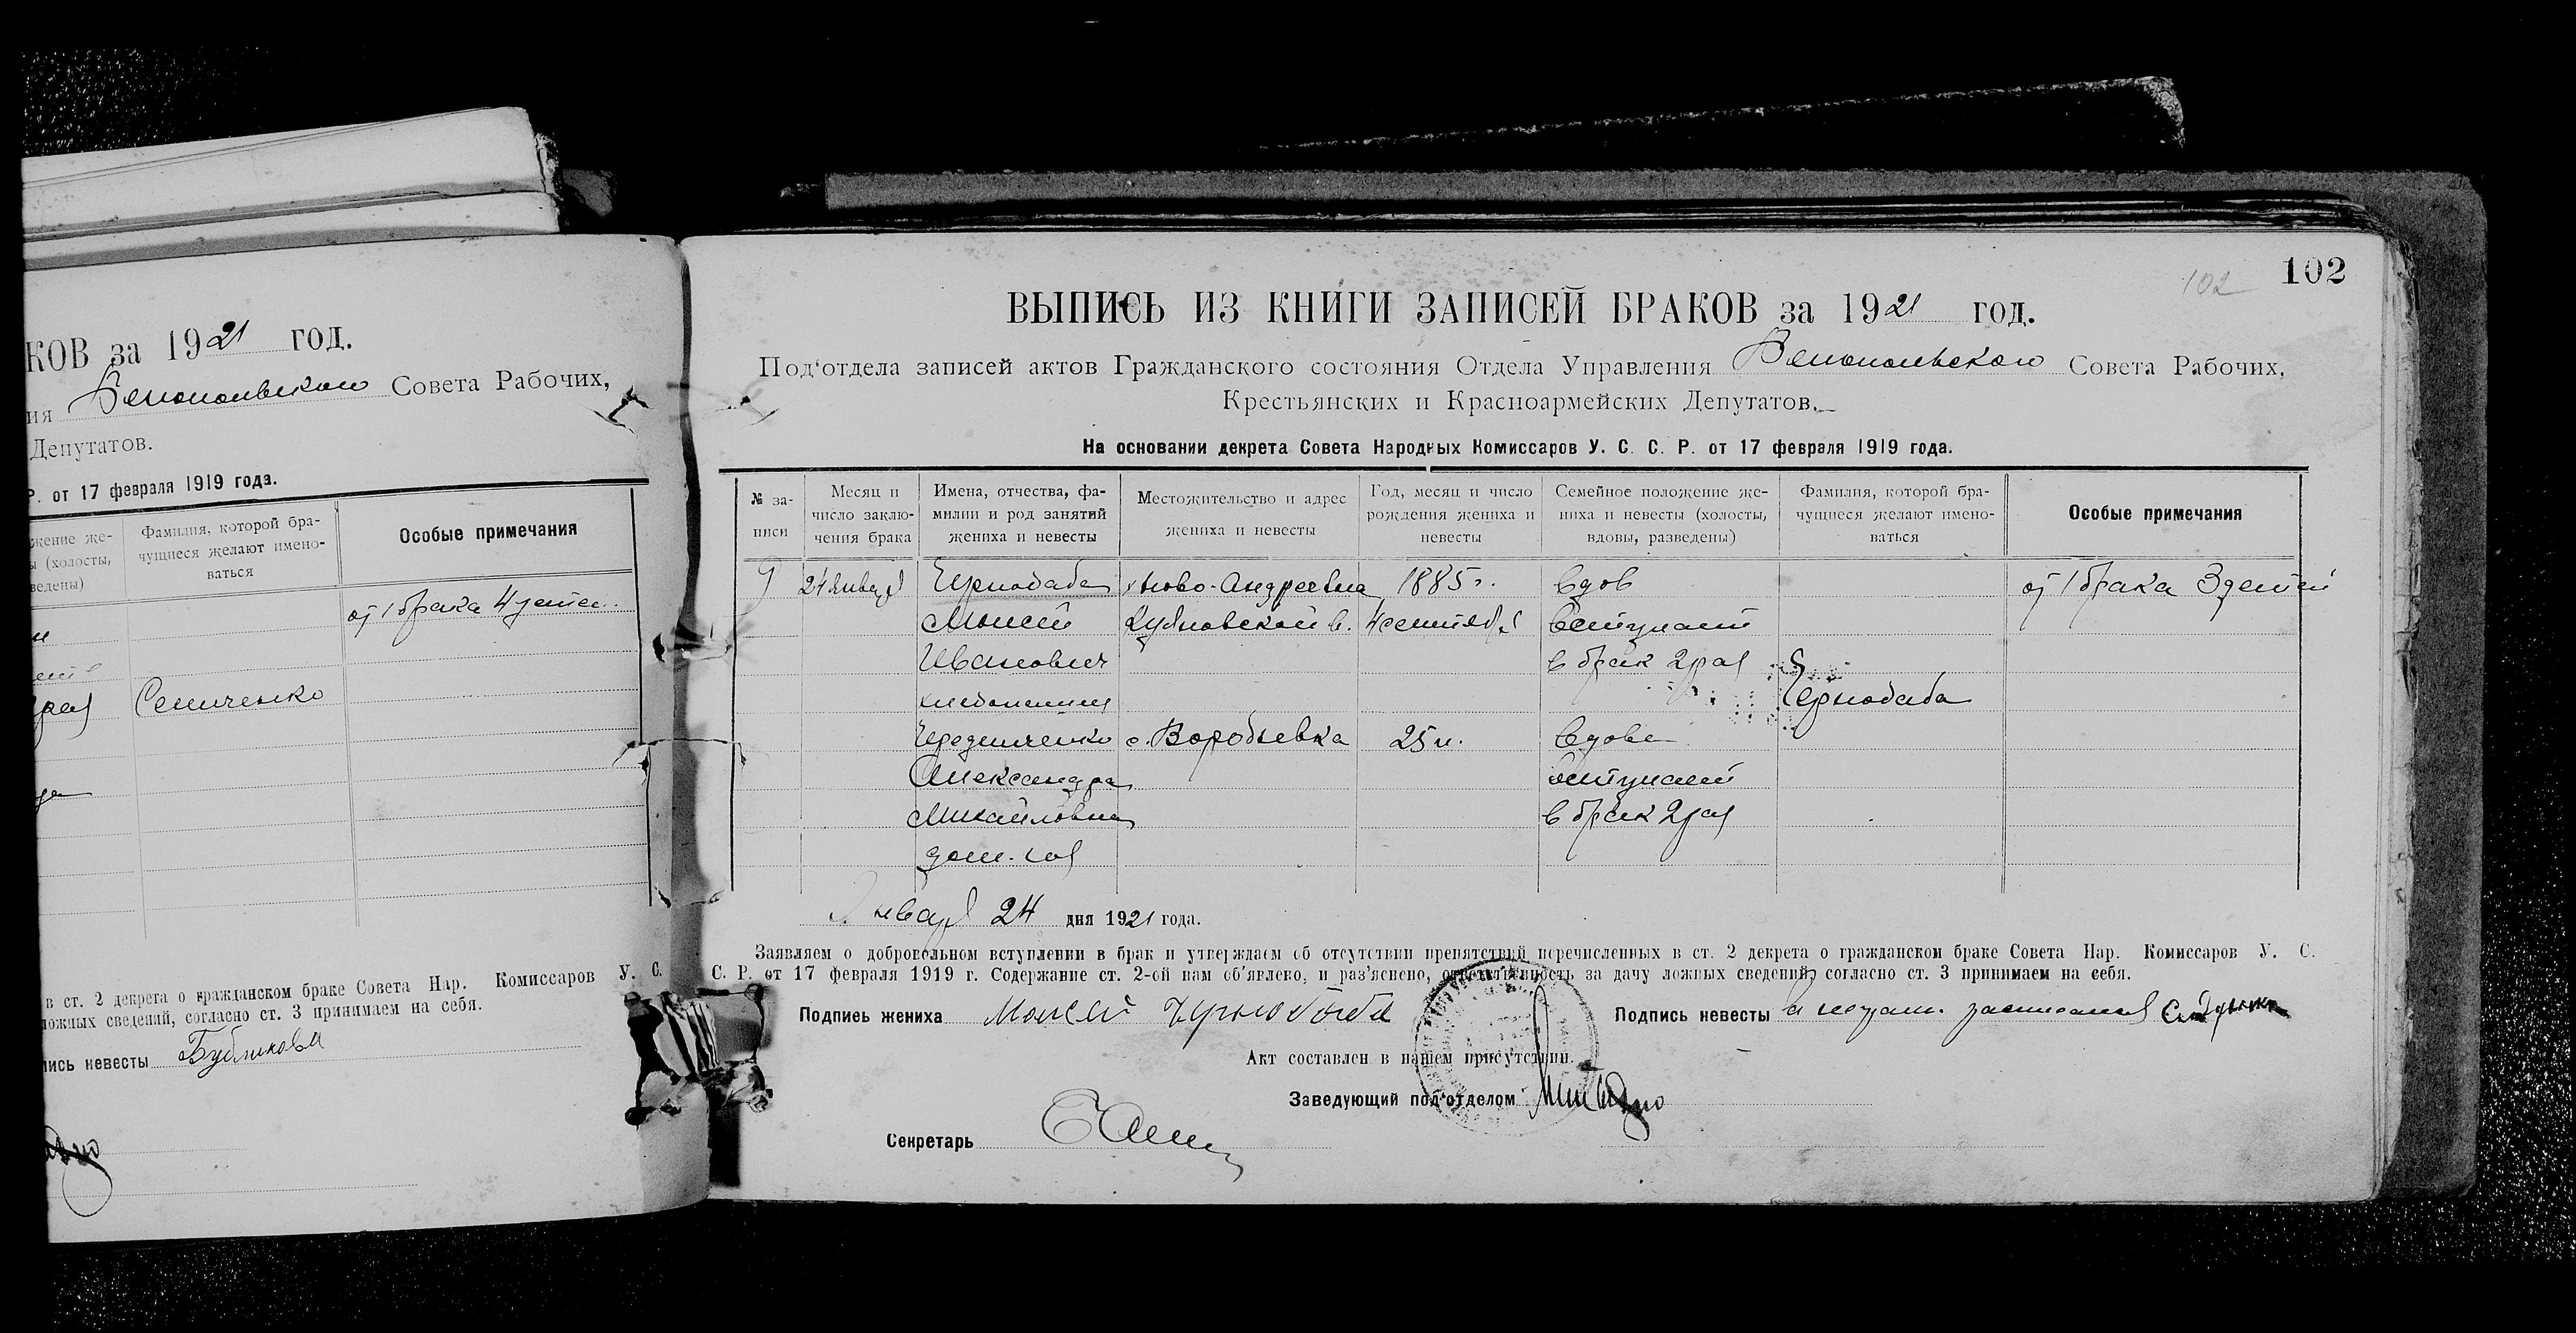 КОВ за 1921 год.
ия Белопольского Совета Рабочих,
Депутатов.
Р. от 17 февраля 1919 года.
жение же-
ы (холосты,
ведены)
Фамилия, которой бра-
чущиеся желают имено-
ваться
Особые примечания
от 1 брака 4 детей
Сениченко
в ст. 2 декрета о гражданском браке Совета Нар. Комиссаров У. С.
ложных сведений, согласно ст. 3 принимаем на себя.
пись невесты
102
102
ВЫПИСЬ ИЗ КНИГИ ЗАПИСЕЙ БРАКОВ за 1921 год.
Под‘отдела записей актов Гражданского состояния Отдела Управления Белопольского Совета Рабочих,
Крестьянских и Красноармейских Депутатов.
На основании декрета Совета Народных Комиссаров У. С. С. Р. от 17 февраля 1919 года.
№ за-
писи
Месяц и
число заклю-
чения брака
Имена, отчества, фа-
милии и род занятий
жениха и невесты
Местожительство и адрес
жениха и невесты
Год, месяц и число
рождения жениха и
невесты
Семейное положение же-
ниха и невесты (холосты,
вдовы, разведены)
Фамилия, которой бра-
чущиеся желают имено-
ваться
Особые примечания
9 24 Января Чернобаба х. Ново-Андреевка 1885 г. вдов от 1 брака 3 детей
Моисей в. 4 сентября вступает
Иванович в брак 2 раз
хлебопашец Чернобаба
с. Воробьевка 25 л. вдова
Александра вступает
Михайловна в брак 2 раз
дом. хоз
Января 24 дня 1921 года.
Заявляем о добровольном вступлении в брак и утверждаем об отсутствии препятствий перечисленных в ст. 2 декрета о гражданском браке Совета Нар. Комиссаров У. С.
С. Р. от 17 февраля 1919 г. Содержание ст. 2-ой нам об’явлено, и раз’яснено, ответственность за дачу ложных сведений, согласно ст. 3 принимаем на себя.
Подпись жениха Моисей Чернобаба
Подпись невесты
Акт составлен в нашем присутствии.
Заведующий под‘отделом
Секретарь